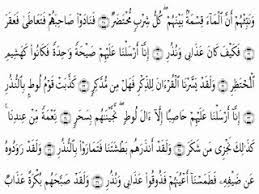 وَنَبِّئْهُمْ أَنَّ ٱلْمَآءَ قِسْمَةٌۢ بَيْنَهُمْ ۖ كُلُّ شِرْبٍ مُّحْتَضَرٌ ۝ فَنَادَوْا۟ صَاحِبَهُمْ فَتَعَاطَىٰ فَعَقَرَ
۝ فَكَيْفَ كَانَ عَذَابِى وَنُذُرِ ۝ إِنَّآ أَرْسَلْنَا عَلَيْهِمْ صَيْحَةً وَٰحِدَةً فَكَانُوا۟ كَهَشِيمِ
ٱلْمُحْتَظِرِ ۝ وَلَقَدْ يَسَّرْنَا ٱلْقُرْءَانَ لِلذِّكْرِ فَهَلْ مِن مُّدَّكِرٍ ۝ كَذَّبَتْ قَوْمُ لُوطٍۭ بِٱلنُّذُرِ
۝ إِنَّآ أَرْسَلْنَا عَلَيْهِمْ حَاصِبًا إِلَّآ ءَالَ لُوطٍ ۖ نَّجَّيْنَٰهُم بِسَحَرٍ ۝ نِّعْمَةً مِّنْ عِندِنَا ۚ
كَذَٰلِكَ نَجْزِى مَن شَكَرَ ۝ وَلَقَدْ أَنذَرَهُم بَطْشَتَنَا فَتَمَارَوْا۟ بِٱلنُّذُرِ ۝ وَلَقَدْ رَٰوَدُوهُ
عَن ضَيْفِهِۦ فَطَمَسْنَآ أَعْيُنَهُمْ فَذُوقُوا۟ عَذَابِى وَنُذُرِ ۝ وَلَقَدْ صَبَّحَهُم بُكْرَةً عَذَابٌ